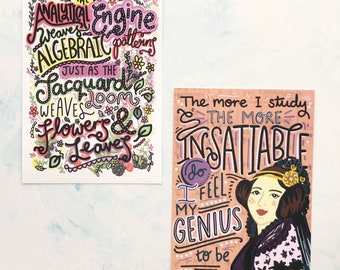 THE
ANALYTICAL
Engine
weaves
ALGEBRAIC
patterns
JUST AS THE
Jacquard
LOOM
WEAVES
Flowers &
Leaves
The more I study
THE MORE
INSATIABLE
do
I FEEL
MY
GENIUS
to be